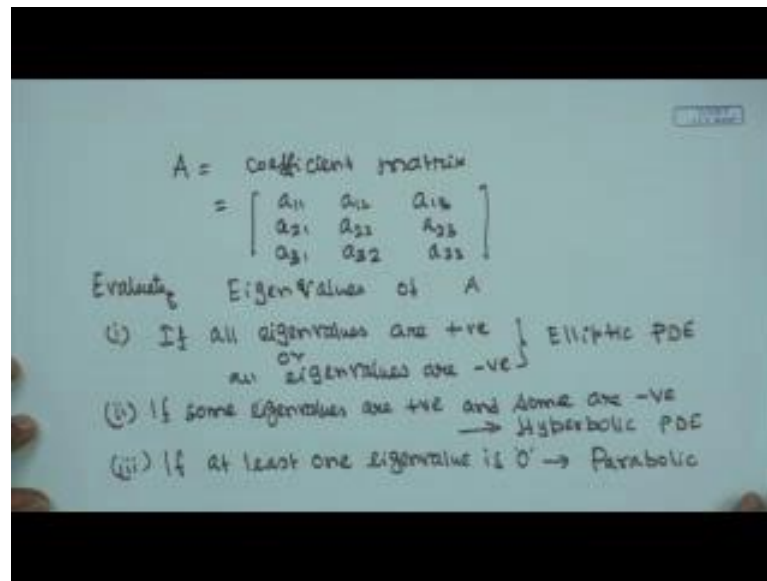 A = coefficient matrix
= [ a11 a12 a13
a21 a22 a23
a31 a32 a33 ]
Evaluate Eigenvalues of A
(i) If all eigenvalues are +ve } Elliptic PDE
or
all eigenvalues are -ve
(ii) If some eigenvalues are +ve and some are -ve
→ Hyberbolic PDE
(iii) If at least one eigenvalue is '0' → Parabolic